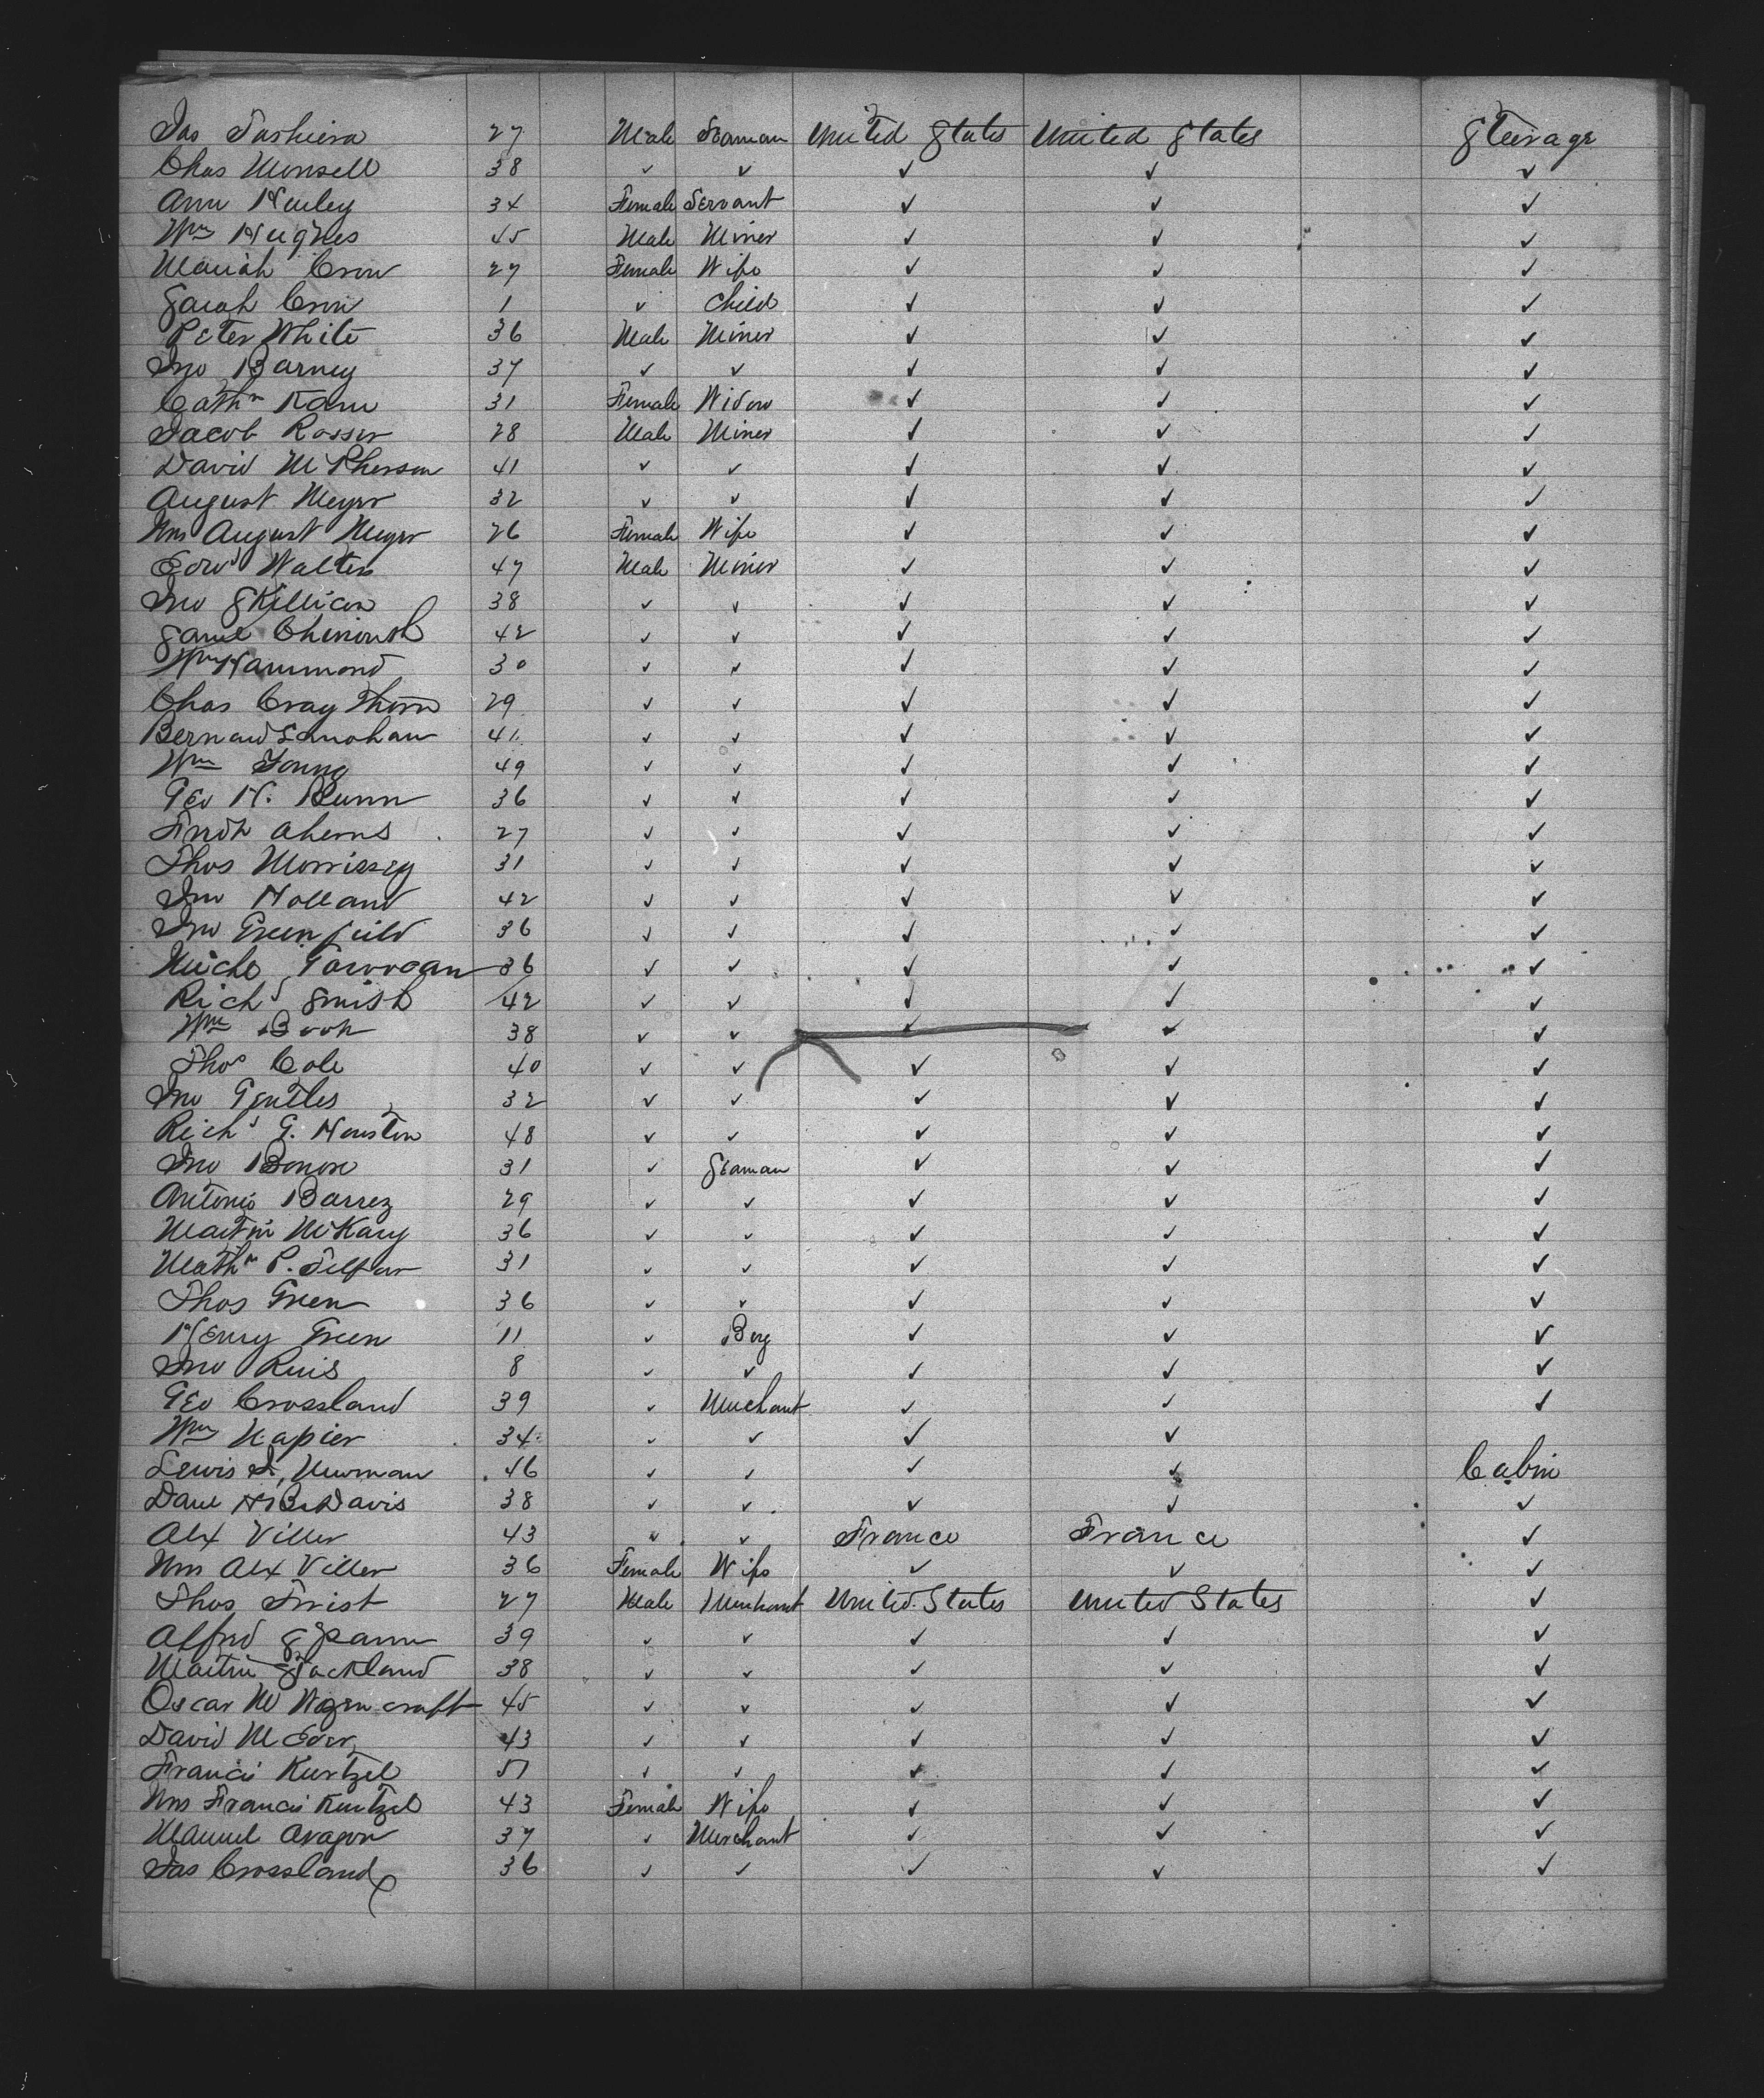 Jas Tashiera 27 Male Seaman United States United States Steerage
Chas Monsell 38 ✓ ✓ ✓ ✓ ✓
Ann Hurley 34 Female Servant ✓ ✓ ✓
Wm Hughes 45 Male Miner ✓ ✓ ✓
Mariah Crow 27 Female Wife ✓ ✓ ✓
Sarah Crow 1 ✓ Child ✓ ✓ ✓
Peter White 36 Male Miner ✓ ✓ ✓
Jno Barney 37 ✓ ✓ ✓ ✓ ✓
Cathn Kane 31 Female Widow ✓ ✓ ✓
Jacob Rosser 28 Male Miner ✓ ✓ ✓
David McPherson 41 ✓ ✓ ✓ ✓ ✓
August Meyer 32 ✓ ✓ ✓ ✓ ✓
Mrs August Meyer 26 Female Wife ✓ ✓ ✓
Edwd Walters 47 Male Miner ✓ ✓ ✓
Jno Skillicon 38 ✓ ✓ ✓ ✓ ✓
Saml Chenowth 42 ✓ ✓ ✓ ✓ ✓
Wm Hammond 30 ✓ ✓ ✓ ✓ ✓
Chas Craythorn 29 ✓ ✓ ✓ ✓ ✓
Bernard Lanohan 41 ✓ ✓ ✓ ✓ ✓
Wm Young 49 ✓ ✓ ✓ ✓ ✓
Geo H. Bunn 36 ✓ ✓ ✓ ✓ ✓
Fredk Aherns 27 ✓ ✓ ✓ ✓ ✓
Thos Morrissey 31 ✓ ✓ ✓ ✓ ✓
Jno Holland 42 ✓ ✓ ✓ ✓ ✓
Jno Greenfield 36 ✓ ✓ ✓ ✓ ✓
Michl 36 ✓ ✓ ✓ ✓ ✓
Richd Smith 42 ✓ ✓ ✓ ✓ ✓
Wm Book 38 ✓ ✓ ✓ ✓ ✓
Thos Cole 40 ✓ ✓ ✓ ✓ ✓
Jno Gentles 32 ✓ ✓ ✓ ✓ ✓
Richd G. Houston 48 ✓ ✓ ✓ ✓ ✓
Jno Bonore 31 ✓ Seaman ✓ ✓ ✓
Antonio Barrez 29 ✓ ✓ ✓ ✓ ✓
Martin McKary 36 ✓ ✓ ✓ ✓ ✓
Mathw P. Telfar 31 ✓ ✓ ✓ ✓ ✓
Thos Green 36 ✓ ✓ ✓ ✓ ✓
Henry Green 11 ✓ Boy ✓ ✓ ✓
Jno Ruis 8 ✓ ✓ ✓ ✓ ✓
Geo Crossland 39 ✓ Merchant ✓ ✓ ✓
Wm Napier 34 ✓ ✓ ✓ ✓
Lewis I. Newman 46 ✓ ✓ ✓ ✓ Cabin
Danl H B Davis 38 ✓ ✓ ✓ ✓ ✓
Alex Viller 43 ✓ ✓ France France ✓
Mrs Alex Viller 36 Female Wife ✓ ✓ ✓
Thos Frist 27 Male Merchant United States United States ✓
Alfred Spann 39 ✓ ✓ ✓ ✓ ✓
Martin Stackland 38 ✓ ✓ ✓ ✓ ✓
Oscar M Wozencraft 45 ✓ ✓ ✓ ✓ ✓
David M Eder 43 ✓ ✓ ✓ ✓ ✓
Francis Kurtzel 51 ✓ ✓ ✓ ✓ ✓
Mrs Francis Kurtzel 43 Female Wife ✓ ✓ ✓
Manuel Aragon 37 ✓ Merchant ✓ ✓ ✓
Jas Crossland 36 ✓ ✓ ✓ ✓ ✓